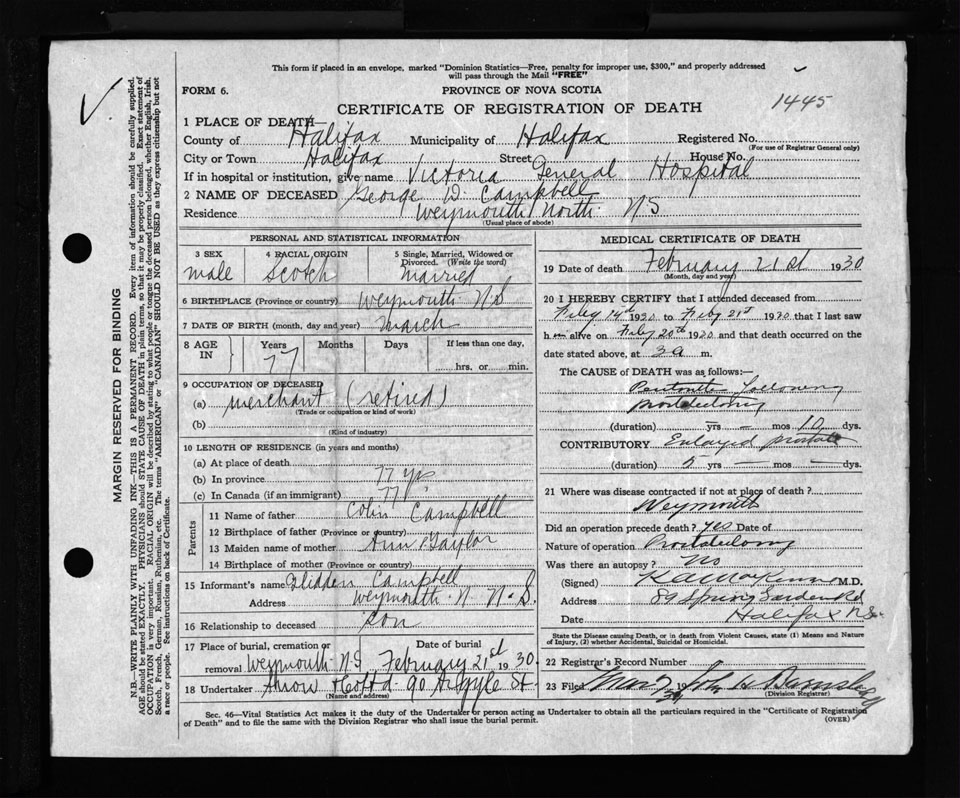 This form if placed in an envelope, marked "Dominion Statistics—Free, penalty for improper use, $300," and properly addressed
will pass through the Mail "FREE"
FORM 6.
PROVINCE OF NOVA SCOTIA
CERTIFICATE OF REGISTRATION OF DEATH
1445
1 PLACE OF DEATH—
County of Halifax Municipality of Halifax Registered No.
(For use of Registrar General only)
City or Town Halifax Street House No.
If in hospital or institution, give name Victoria General Hospital
2 NAME OF DECEASED George D. Campbell
Residence Weymouth North N S
(Usual place of abode)
PERSONAL AND STATISTICAL INFORMATION
3 SEX male
4 RACIAL ORIGIN Scotch
5 Single, Married, Widowed or Divorced. (Write the word) married
6 BIRTHPLACE (Province or country) Weymouth N.S
7 DATE OF BIRTH (month, day and year) March
8 AGE IN Years Months Days If less than one day,
77 hrs. or min.
9 OCCUPATION OF DECEASED
(a) merchant (retired)
(Trade or occupation or kind of work)
(b)
(Kind of industry)
10 LENGTH OF RESIDENCE (in years and months)
(a) At place of death
(b) In province 77 yrs
(c) In Canada (if an immigrant) 77
Parents
11 Name of father Colin Campbell
12 Birthplace of father (Province or country)
13 Maiden name of mother Ann Taylor
14 Birthplace of mother (Province or country)
15 Informant's name Glidden Campbell
Address Weymouth N. N.S.
16 Relationship to deceased son
17 Place of burial, cremation or removal Weymouth N.S Date of burial February 21st 1930.
18 Undertaker Snow & Co Ltd. 90 Argyle St.
(Name and address)
MEDICAL CERTIFICATE OF DEATH
19 Date of death February 21st 1930
(Month, day and year)
20 I HEREBY CERTIFY that I attended deceased from
Feby 14th 1930 to Feby 21st 1930 that I last saw
h im alive on Feby 20th 1930 and that death occurred on the
date stated above, at 3 a m.
The CAUSE OF DEATH was as follows:—
Peritonitis following
prostatectomy
(duration) yrs — mos 10 dys.
CONTRIBUTORY Enlarged prostate
(duration) 5 yrs — mos — dys.
21 Where was disease contracted if not at place of death?
Weymouth
Did an operation precede death? yes Date of
Nature of operation Prostatectomy
Was there an autopsy? No
(Signed) M.D.
Address 89 Spring Garden Rd
Date Halifax N.S.
State the Disease causing Death, or in death from Violent Causes, state (1) Means and Nature
of Injury, (2) whether Accidental, Suicidal or Homicidal.
22 Registrar's Record Number
23 Filed 19 John
(Division Registrar)
Sec. 46—Vital Statistics Act makes it the duty of the Undertaker or person acting as Undertaker to obtain all the particulars required in the "Certificate of Registration
of Death" and to file the same with the Division Registrar who shall issue the burial permit.
(OVER)
MARGIN RESERVED FOR BINDING
N.B.—WRITE PLAINLY WITH UNFADING INK—THIS IS A PERMANENT RECORD. Every item of information should be carefully supplied.
AGE should be stated EXACTLY. PHYSICIANS should STATE CAUSE OF DEATH in plain terms, so that it may be properly classified. Exact statement of
OCCUPATION is very important. RACIAL ORIGIN will be described by stating to what people or tongue the deceased person belonged, whether English, Irish,
Scotch, French, German, Russian, Ruthenian, etc. The terms "AMERICAN" or "CANADIAN" SHOULD NOT BE USED as they express citizenship but not
a race or people. See instructions on back of Certificate.